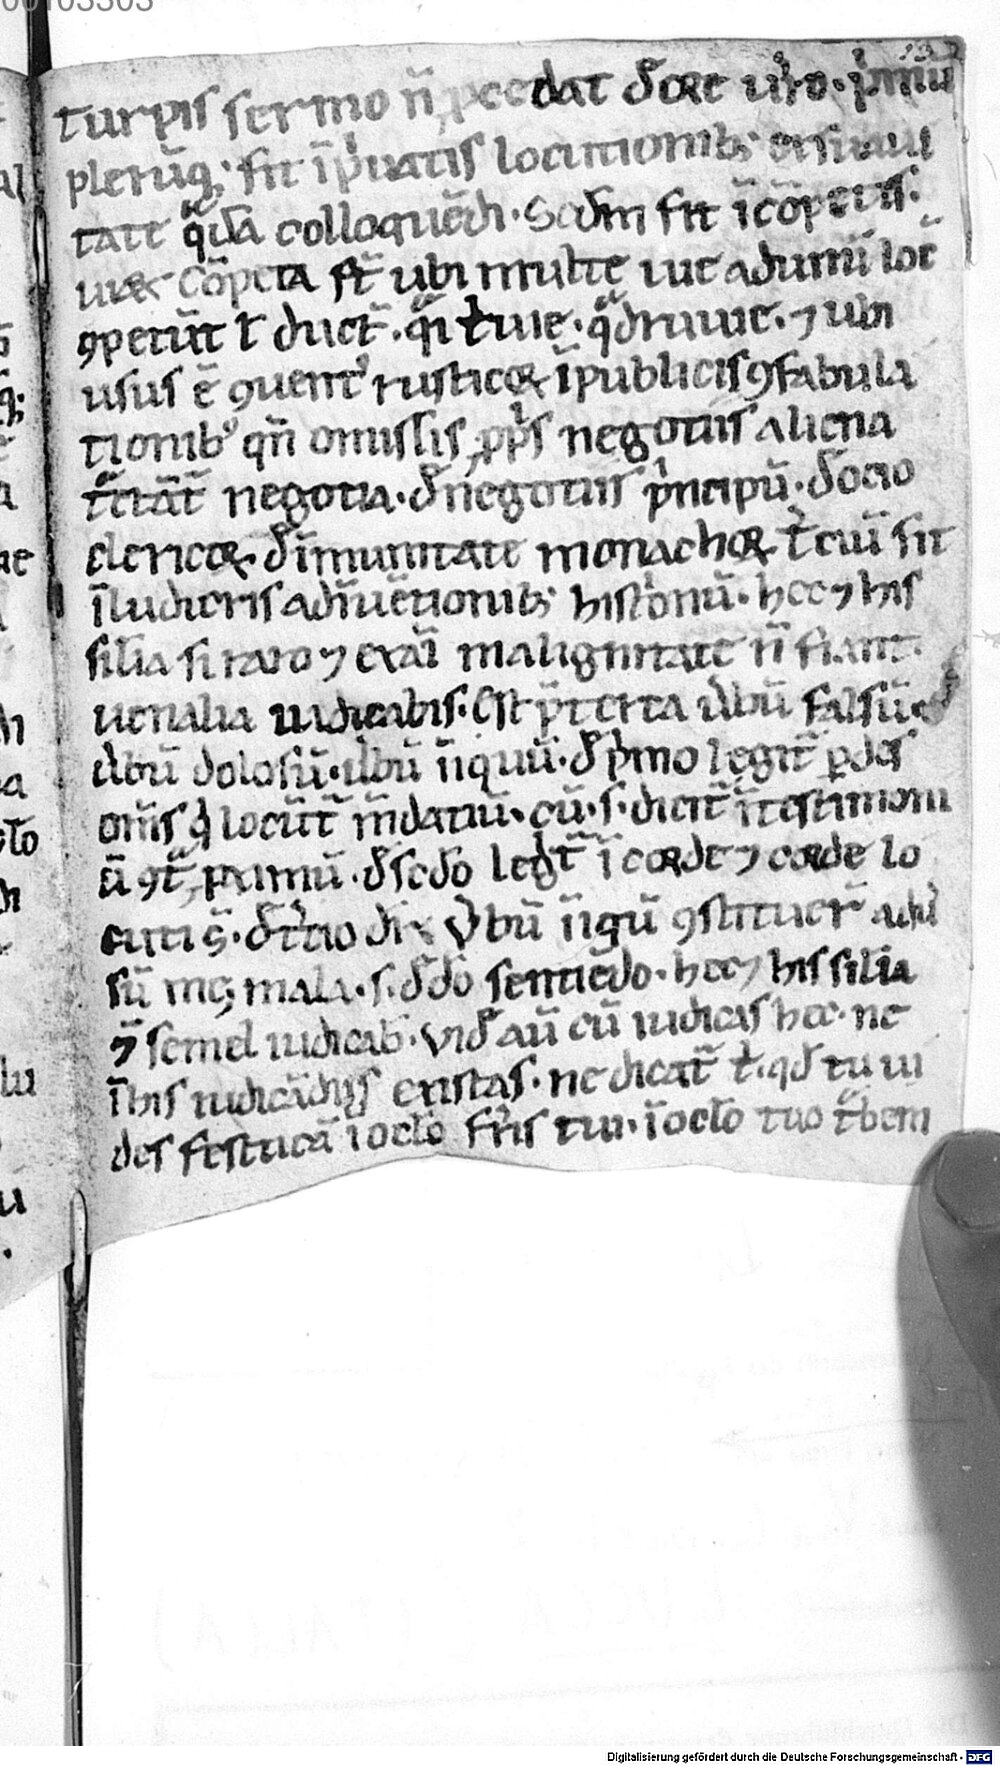 00103303
turpis sermo n̄ p̱cedat d͛ ore ur̄o. p̓mū
plerūq; fit īp̓uatis locutionib; 
tate q̄dā colloquēdi. Scd̄m fit īcōpetis.
uie cōpeta st̄ ubi multe uie ad unū locū
ꝯpetūt ł duct̄. q̄i t̓uie. q̄driuie. ⁊ ubi
usus ē ꝯuent᷒ rusticoꝝ īpublicis ꝯfabula
tionib᷒ qn̄ omissis ꝓp̓is negotiis aliena
t̄ctāt negotia. d͛ negotiis p̓ncipū. d͛ ocio
clericoꝝ. d͛ īmunitate monachoꝝ t̓ciū fit
īludicris adīuētionib; histrionū. hec ⁊ his
silia si raro ⁊ exāī malignitate n̄ fiant.
uenalia iudicabis. Est p̄terea ūbū falsū.
ūbū dolosū. ūbū iniquū. d͛ p̓mo legit̄ ꝑdes
om̄s q̓ locūt̄ m̄daciū. cū. s. dicit̄ ī testimoni
ū ꝯt̄ ꝓximū. d͛ scd̄o legit̄ ī corde ⁊ corde lo
cuti s̄. d͛ t̓tio dix̄ ūbū inīqū ꝯstituer̄ adū
sū me mala. s. d͛do sentiēdo. hec ⁊ his silia
⁊ semel iudicab̄. vid͛ aū cū iudicas hec. ne
ī his iudicādiis existas. ne dicat̄ t̓. qd̄ tu ui
des festucā ī oclo fr̄is tui. ī oclo tuo t̄bem
Digitalisierung gefördert durch die Deutsche Forschungsgemeinschaft - DFG